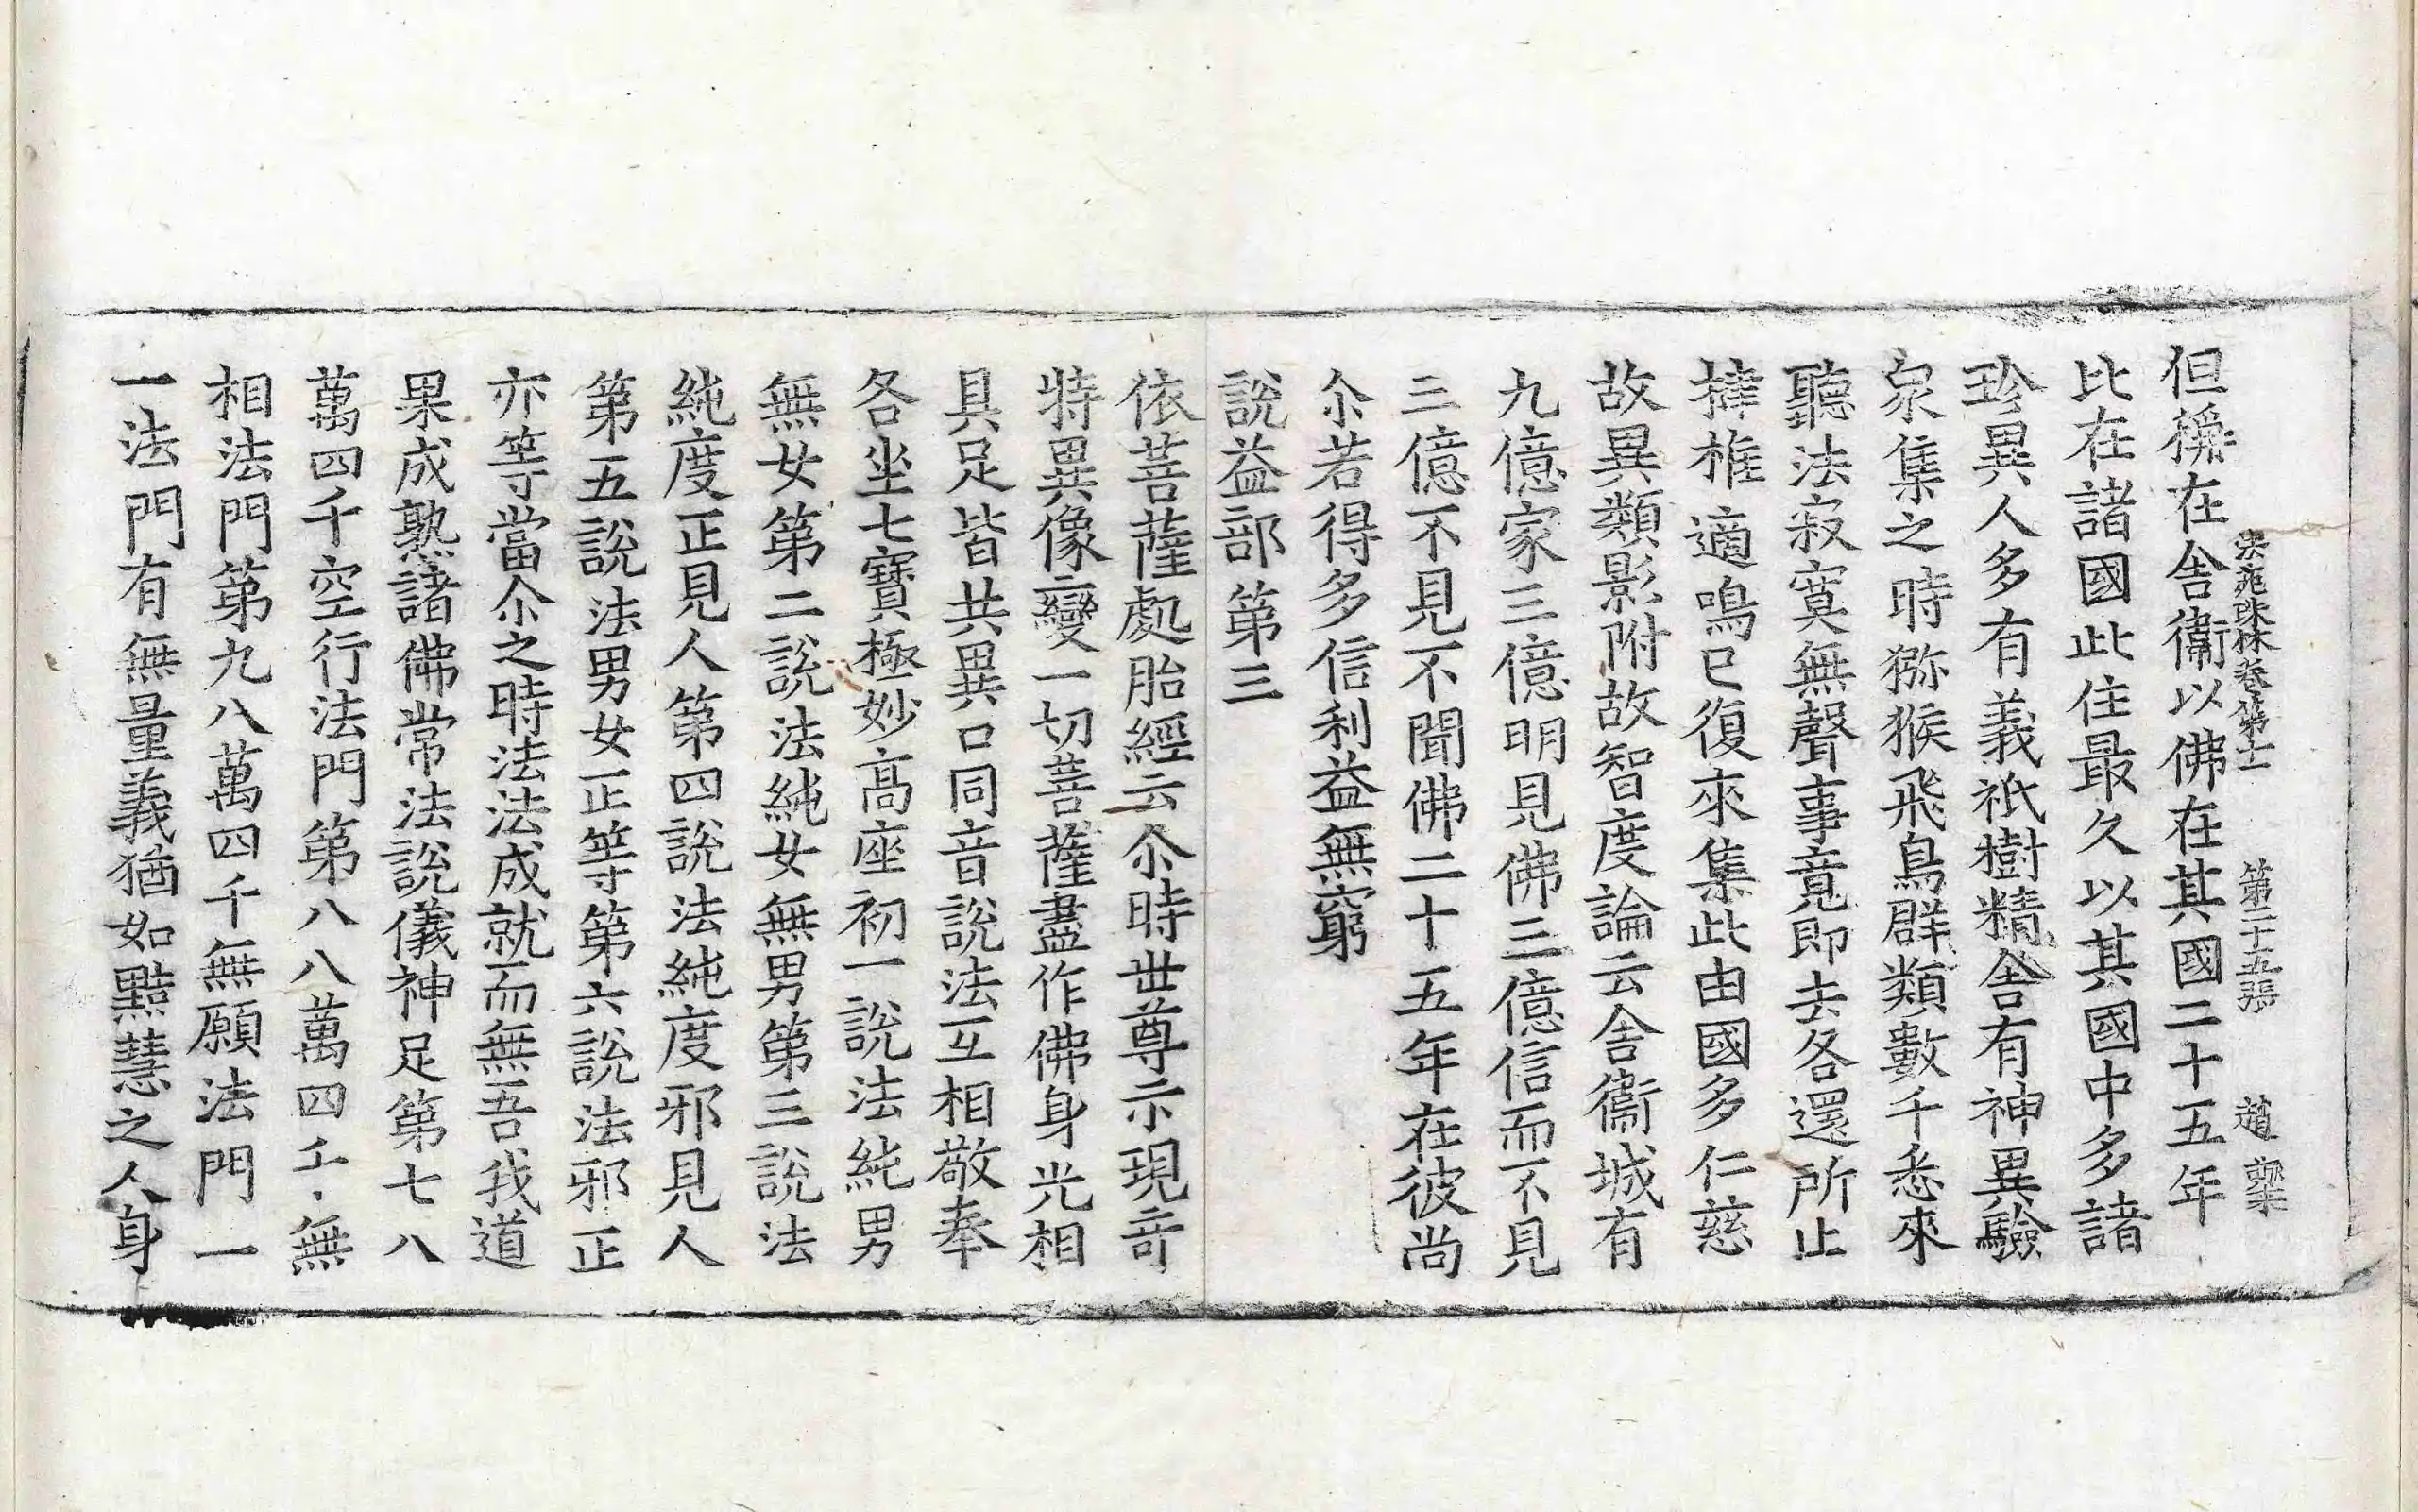 法苑珠林卷第十二 第二十五張 趙
但稱在舎衛以佛在其國二十五年
比在諸國此住最久以其國中多諸
珎異人多有義祇樹精舎有神異驗
衆集之時猕猴飛鳥群類數千悉來
聽法寂寞無聲事竟即去各還所止
揵椎適鳴已復來集此由國多仁慈
故異類影附故智度論云舎衛城有
九億家三億明見佛三億信而不見
三億不見不聞佛二十五年在彼尚
尒若得多信利益無窮
說益部第三
依菩薩處胎經云尒時世尊示現竒
特異像變一切菩薩盡作佛身光相
具足皆共異口同音說法互相敬奉
各坐七寶極妙高座初一說法純男
無女第二說法純女無男第三說法
純度正見人第四說法純度邪見人
第五說法男女正等第六說法邪正
亦等當尒之時法法成就而無吾我道
果成熟諸佛常法說儀神足第七八
萬四千空行法門第八八萬四千無
相法門第九八萬四千無願法門一
一法門有無量義猶如黠慧之人身